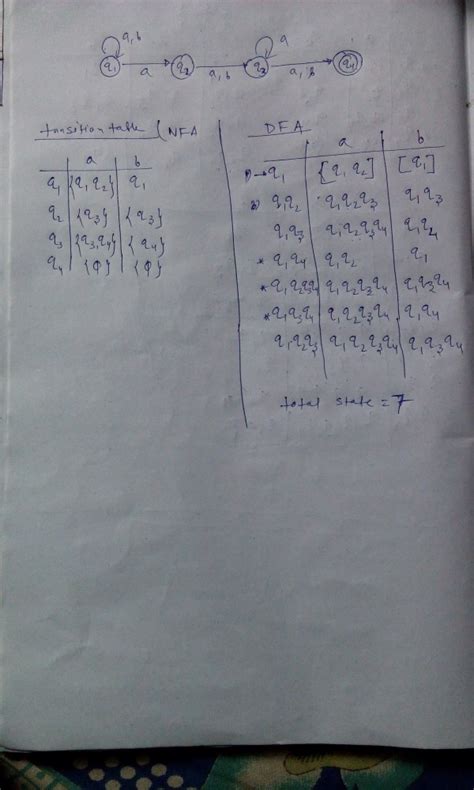 a,b a
q1 a q2 a,b q3 a,b q4
transition table (NFA
a b
q1 {q1 q2} q1
q2 {q3} {q3}
q3 {q3,q4} {q4}
q4 {ϕ} {ϕ}
DFA
a b
→q1 {q1 q2] [q1]
q1q2 q1q2q3 q1q3
q1q3 q1q2q3q4 q1q4
*q1q4 q1q2 q1
*q1q2q3q4 q1q2q3q4 q1q3q4
*q1q3q4 q1q2q3q4 q1q4
q1q2q3 q1q2q3q4 q1q3q4
total state = 7